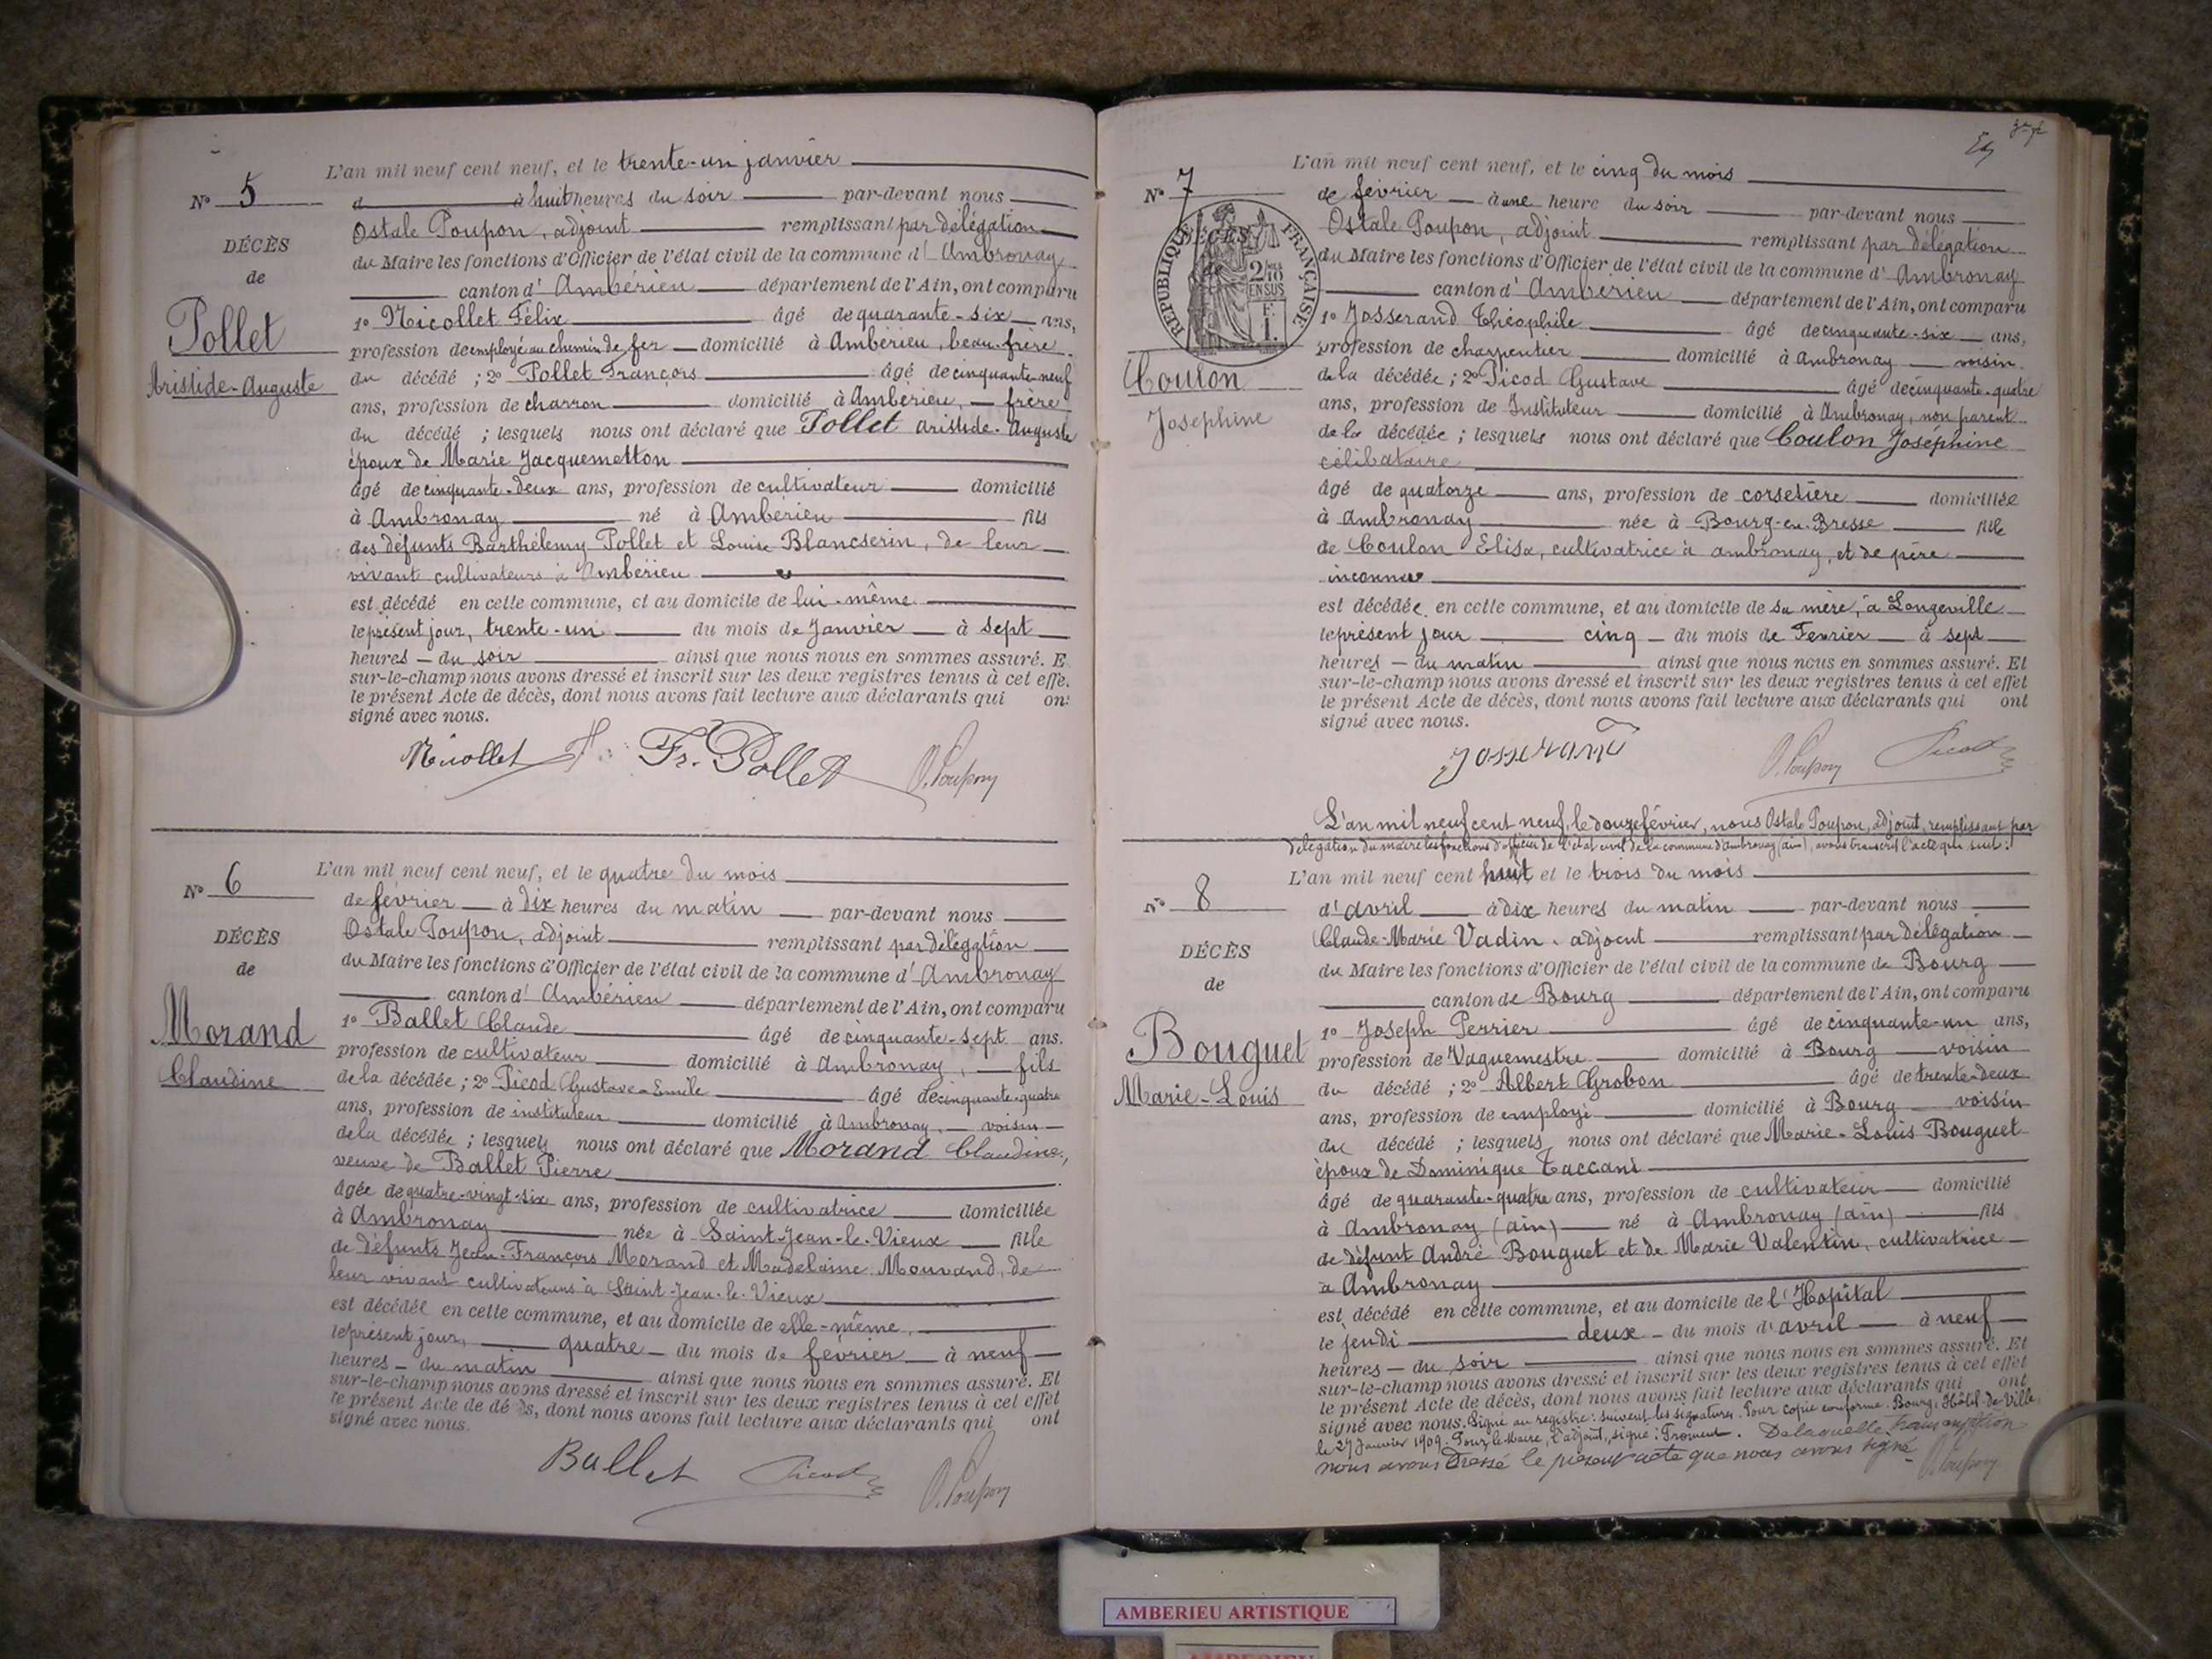 L'an mil neuf cent neuf, et le trente-un janvier
N° 5
à huit heures du soir par-devant nous
Ostale Poupon, adjoint remplissant par délégation
DÉCÈS
du Maire les fonctions d'Officier de l'état civil de la commune d'Ambronay
de
canton d'Ambérieu département de l'Ain, ont comparu
Pollet
1° Nicollet Félix âgé de quarante-six ans,
profession de employé au chemin de fer domicilié à Ambérieu, beau-frère
Aristide-Auguste
du décédé ; 2° Pollet François âgé de cinquante-neuf
ans, profession de charron domicilié à Ambérieu, frère
du décédé ; lesquels nous ont déclaré que Pollet Aristide-Auguste
époux de Marie Jacquemetton
âgé de cinquante-deux ans, profession de cultivateur domicilié
à Ambronay né à Ambérieu fils
des défunts Barthélemy Pollet et Louise Blancserin, de leur
vivant cultivateurs à Ambérieu
est décédé en cette commune, et au domicile de lui-même
le présent jour, trente-un du mois de Janvier à sept
heures du soir ainsi que nous nous en sommes assuré. E
sur-le-champ nous avons dressé et inscrit sur les deux registres tenus à cet effe
le présent Acte de décès, dont nous avons fait lecture aux déclarants qui on
signé avec nous.
Nicollet F. Fr. Pollet O. Poupon
L'an mil neuf cent neuf, et le quatre du mois
N° 6
de février à dix heures du matin par-devant nous
DÉCÈS
Ostale Poupon, adjoint remplissant par délégation
de
du Maire les fonctions d'Officier de l'état civil de la commune d'Ambronay
canton d'Ambérieu département de l'Ain, ont comparu
Morand
1° Ballet Claude âgé de cinquante-sept ans.
profession de cultivateur domicilié à Ambronay, fils
Claudine
de la décédée ; 2° Picod Gustave-Emile âgé de cinquante-quatre
ans, profession de instituteur domicilié à Ambronay, voisin
de la décédée ; lesquels nous ont déclaré que Morand Claudine,
veuve de Ballet Pierre
âgée de quatre-vingt-six ans, profession de cultivatrice domiciliée
à Ambronay née à Saint-Jean-le-Vieux fille
de défunts Jean-François Morand et Madelaine Mouvand, de
leur vivant cultivateurs à Saint-Jean-le-Vieux
est décédée en cette commune, et au domicile de elle-même,
le présent jour, quatre du mois de février à neuf
heures du matin ainsi que nous nous en sommes assuré. Et
sur-le-champ nous avons dressé et inscrit sur les deux registres tenus à cet effet
le présent Acte de dé ès, dont nous avons fait lecture aux déclarants qui ont
signé avec nous.
Ballet Picod O. Poupon
L'an mil neuf cent neuf, et le cinq du mois
N° 7
de février à une heure du soir par-devant nous
Ostale Poupon, adjoint remplissant par délégation
DÉCÈS
de
RÉPUBLIQUE FRANÇAISE
2/10 EN SUS
1 F.
du Maire les fonctions d'Officier de l'état civil de la commune d'Ambronay
canton d'Ambérieu département de l'Ain, ont comparu
1° Josserand Théophile âgé de cinquante-six ans,
profession de charpentier domicilié à Ambronay voisin
Coulon
de la décédée ; 2° Picod Gustave âgé de cinquante-quatre
Joséphine
ans, profession de Instituteur domicilié à Ambronay, non parent
de la décédée ; lesquels nous ont déclaré que Coulon Joséphine
célibataire
âgé de quatorze ans, profession de corsetière domiciliée
à Ambronay née à Bourg-en-Bresse fille
de Coulon Elisa, cultivatrice à Ambronay, et de père
inconnu
est décédée en cette commune, et au domicile de sa mère, à Longeville
le présent jour cinq du mois de Fevrier à sept
heures du matin ainsi que nous nous en sommes assuré. Et
sur-le-champ nous avons dressé et inscrit sur les deux registres tenus à cet effet
le présent Acte de décès, dont nous avons fait lecture aux déclarants qui ont
signé avec nous.
Josserand O. Poupon Picod
L'an mil neuf cent neuf, le douze février, nous Ostale Poupon, adjoint, remplissant par
délégation du maire les fonctions d'officier de l'état civil de la commune d'Ambronay (ain), avons transcrit l'acte qui suit :
L'an mil neuf cent huit et le trois du mois
N° 8
d'avril à dix heures du matin par-devant nous
Claude-Marie Vadin, adjoint remplissant par délégation
DÉCÈS
du Maire les fonctions d'Officier de l'état civil de la commune de Bourg
de
canton de Bourg département de l'Ain, ont comparu
1° Joseph Perrier âgé de cinquante-un ans,
Bouguet
profession de Vaguemestre domicilié à Bourg voisin
Marie-Louis
du décédé ; 2° Albert Grobon âgé de trente-deux
ans, profession de employé domicilié à Bourg voisin
du décédé ; lesquels nous ont déclaré que Marie-Louis Bouguet
époux de Dominique Taccani
âgé de quarante-quatre ans, profession de cultivateur domicilié
à Ambronay (ain) né à Ambronay (ain) fils
de défunt André Bouguet et de Marie Valentin, cultivatrice
à Ambronay
est décédé en cette commune, et au domicile de l'Hopital
le jeudi deux du mois d'avril à neuf
heures du soir ainsi que nous nous en sommes assuré. Et
sur-le-champ nous avons dressé et inscrit sur les deux registres tenus à cet effet
le présent Acte de décès, dont nous avons fait lecture aux déclarants qui ont
signé avec nous. Signé au registre : suivent les signatures. Pour copie conforme. Bourg, Hôtel-de-Ville
le 27 Janvier 1909. Pour le Maire, l'adjoint, signé : Froment. De laquelle transcription
nous avons dressé le présent acte que nous avons signé O. Poupon
AMBERIEU ARTISTIQUE
AMBERIEU